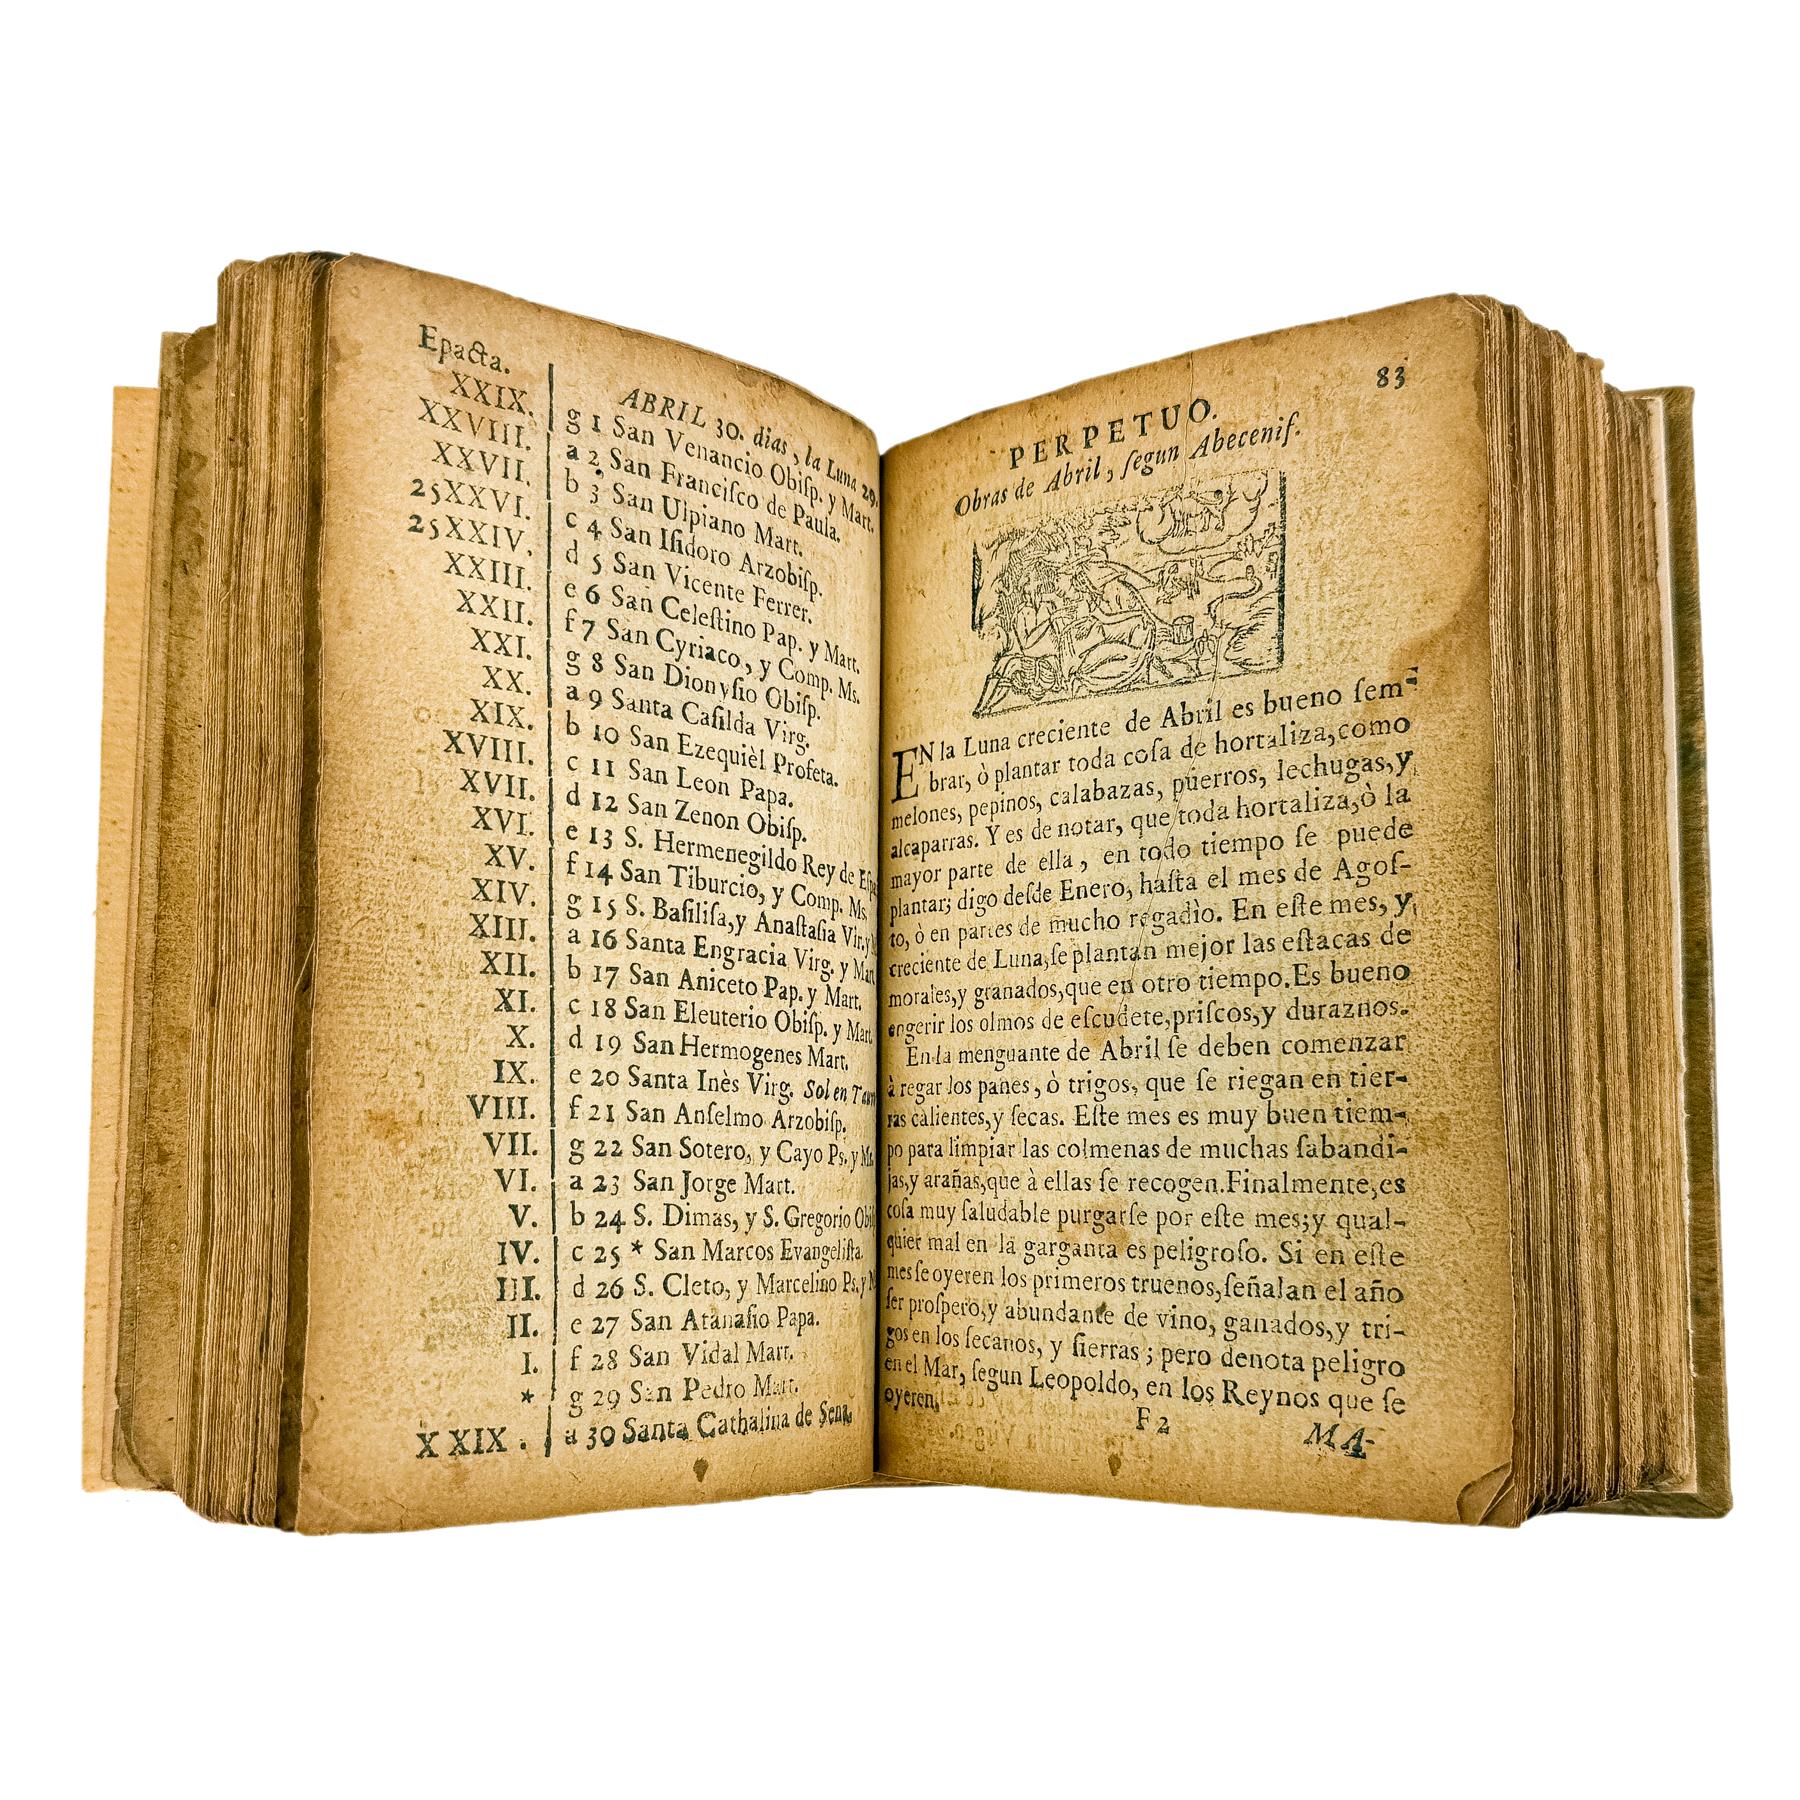 Epacta.
ABRIL 30. dias, la Luna 29.
XXIX. g 1 San Venancio Obiſp. y Mart.
XXVIII. a 2 San Franciſco de Paula.
XXVII. b 3 San Ulpiano Mart.
25XXVI. c 4 San Iſidoro Arzobiſp.
25XXIV. d 5 San Vicente Ferrer.
XXIII. e 6 San Celeſtino Pap. y Mart.
XXII. f 7 San Cyriaco, y Comp. Ms.
XXI. g 8 San Dionyſio Obiſp.
XX. a 9 Santa Caſilda Virg.
XIX. b 10 San Ezequièl Profeta.
XVIII. c 11 San Leon Papa.
XVII. d 12 San Zenon Obiſp.
XVI. e 13 S. Hermenegildo Rey de Eſpa
XV. f 14 San Tiburcio, y Comp. Ms.
XIV. g 15 S. Baſiliſa, y Anaſtaſia Vir. y
XIII. a 16 Santa Engracia Virg. y Mart
XII. b 17 San Aniceto Pap. y Mart.
XI. c 18 San Eleuterio Obiſp. y Mart.
X. d 19 San Hermogenes Mart.
IX. e 20 Santa Inès Virg. Sol en Taur
VIII. f 21 San Anſelmo Arzobiſp.
VII. g 22 San Sotero, y Cayo Ps. y Ms.
VI. a 23 San Jorge Mart.
V. b 24 S. Dimas, y S. Gregorio Obiſ
IV. c 25 * San Marcos Evangeliſta.
III. d 26 S. Cleto, y Marcelino Ps. y M
II. e 27 San Atanaſio Papa.
I. f 28 San Vidal Mart.
* g 29 San Pedro Mart.
XXIX. a 30 Santa Cathalina de Sena.
83
PERPETUO.
Obras de Abril, ſegun Abeceniſ.
EN la Luna creciente de Abril es bueno ſem-
brar, ò plantar toda coſa de hortaliza, como
melones, pepinos, calabazas, puerros, lechugas, y
alcaparras. Y es de notar, que toda hortaliza, ò la
mayor parte de ella, en todo tiempo ſe puede
plantar; digo deſde Enero, haſta el mes de Agoſ-
to, ò en partes de mucho regadìo. En eſte mes, y
creciente de Luna, ſe plantan mejor las eſtacas de
morales, y granados, que en otro tiempo. Es bueno
engerir los olmos de eſcudete, priſcos, y duraznos.
En la menguante de Abril ſe deben comenzar
à regar los panes, ò trigos, que ſe riegan en tier-
ras calientes, y ſecas. Eſte mes es muy buen tiem-
po para limpiar las colmenas de muchas ſabandi-
jas, y arañas, que à ellas ſe recogen. Finalmente, es
coſa muy ſaludable purgarſe por eſte mes; y qual-
quier mal en la garganta es peligroſo. Si en eſte
mes ſe oyeren los primeros truenos, ſeñalan el año
ſer proſpero, y abundante de vino, ganados, y tri-
gos en los ſecanos, y ſierras; pero denota peligro
en el Mar, ſegun Leopoldo, en los Reynos que ſe
oyeren.
F 2 MA-